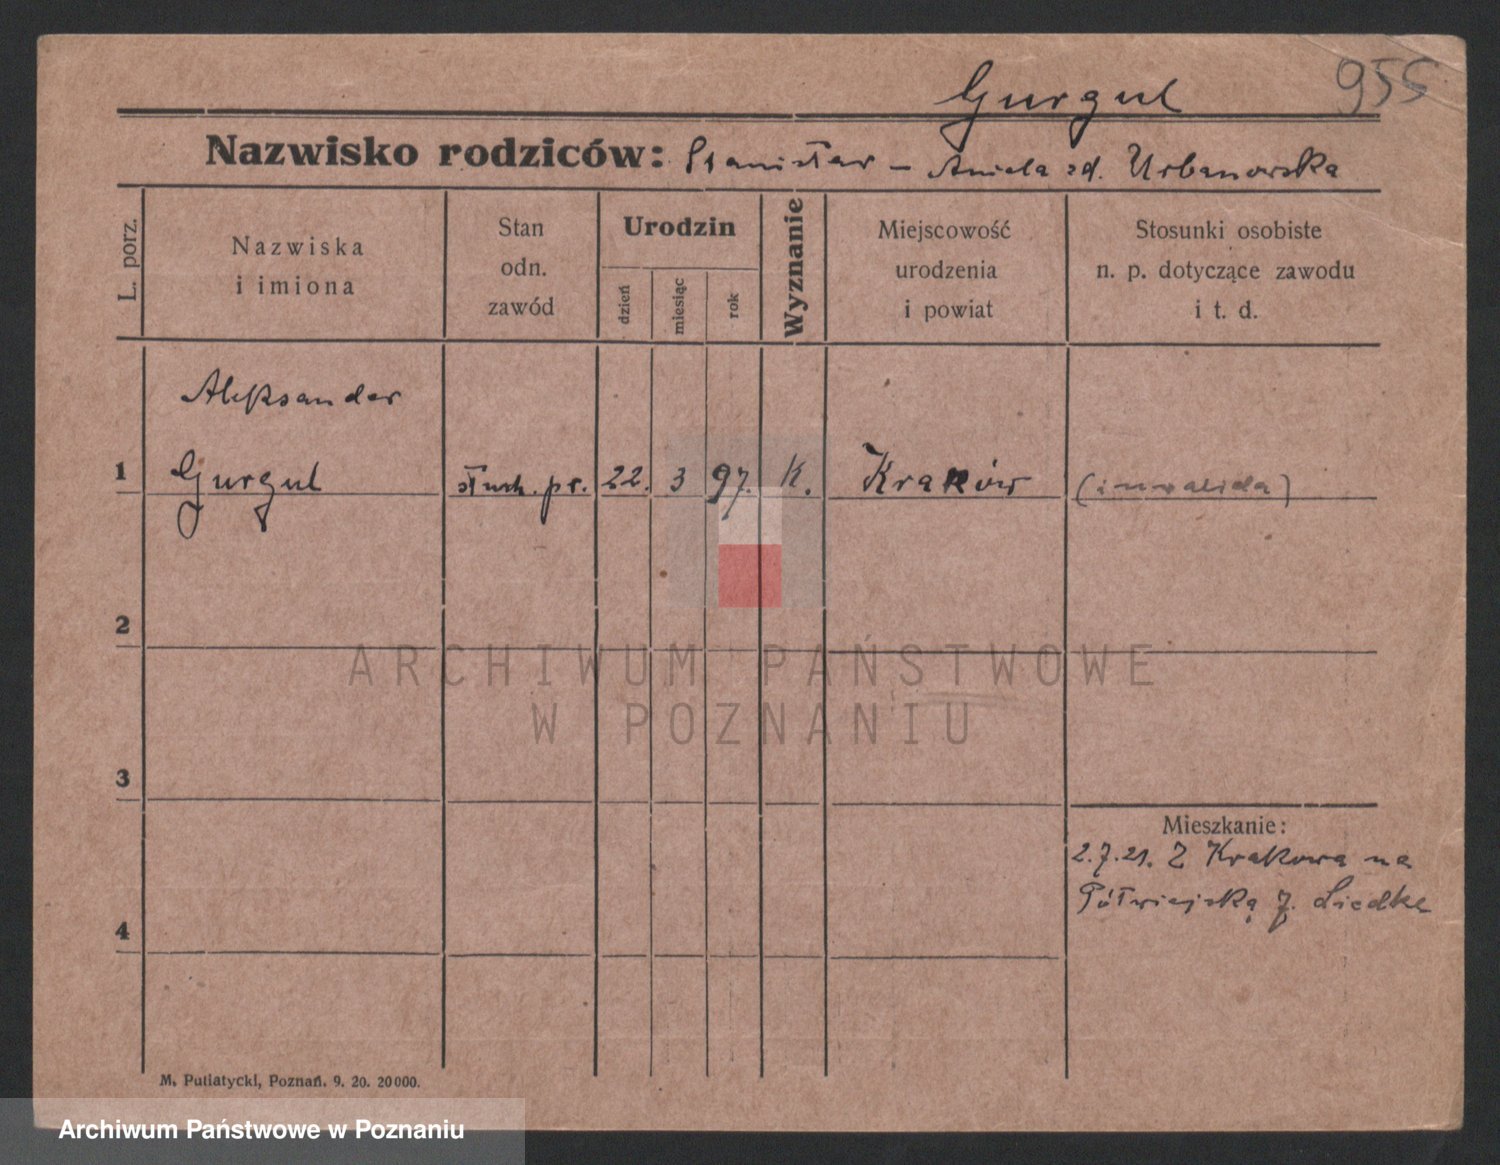 Gurgul 955
Nazwisko rodziców: Stanisław – Aniela zd. Urbanowska
L. porz.
Nazwiska
i imiona
Stan
odn.
zawód
Urodzin
dzień
miesiąc
rok
Wyznanie
Miejscowość
urodzenia
i powiat
Stosunki osobiste
n. p. dotyczące zawodu
i t. d.
Aleksander
1 Gurgul słuch. pr. 22. 3 97. K. Kraków (inwalida)
2
ARCHIWUM PAŃSTWOWE
W POZNANIU
3
Mieszkanie:
2.7.21. Z Krakowa na
Półwiejską 7. Liedke
4
M. Putiatycki, Poznań. 9. 20. 20000.
Archiwum Państwowe w Poznaniu